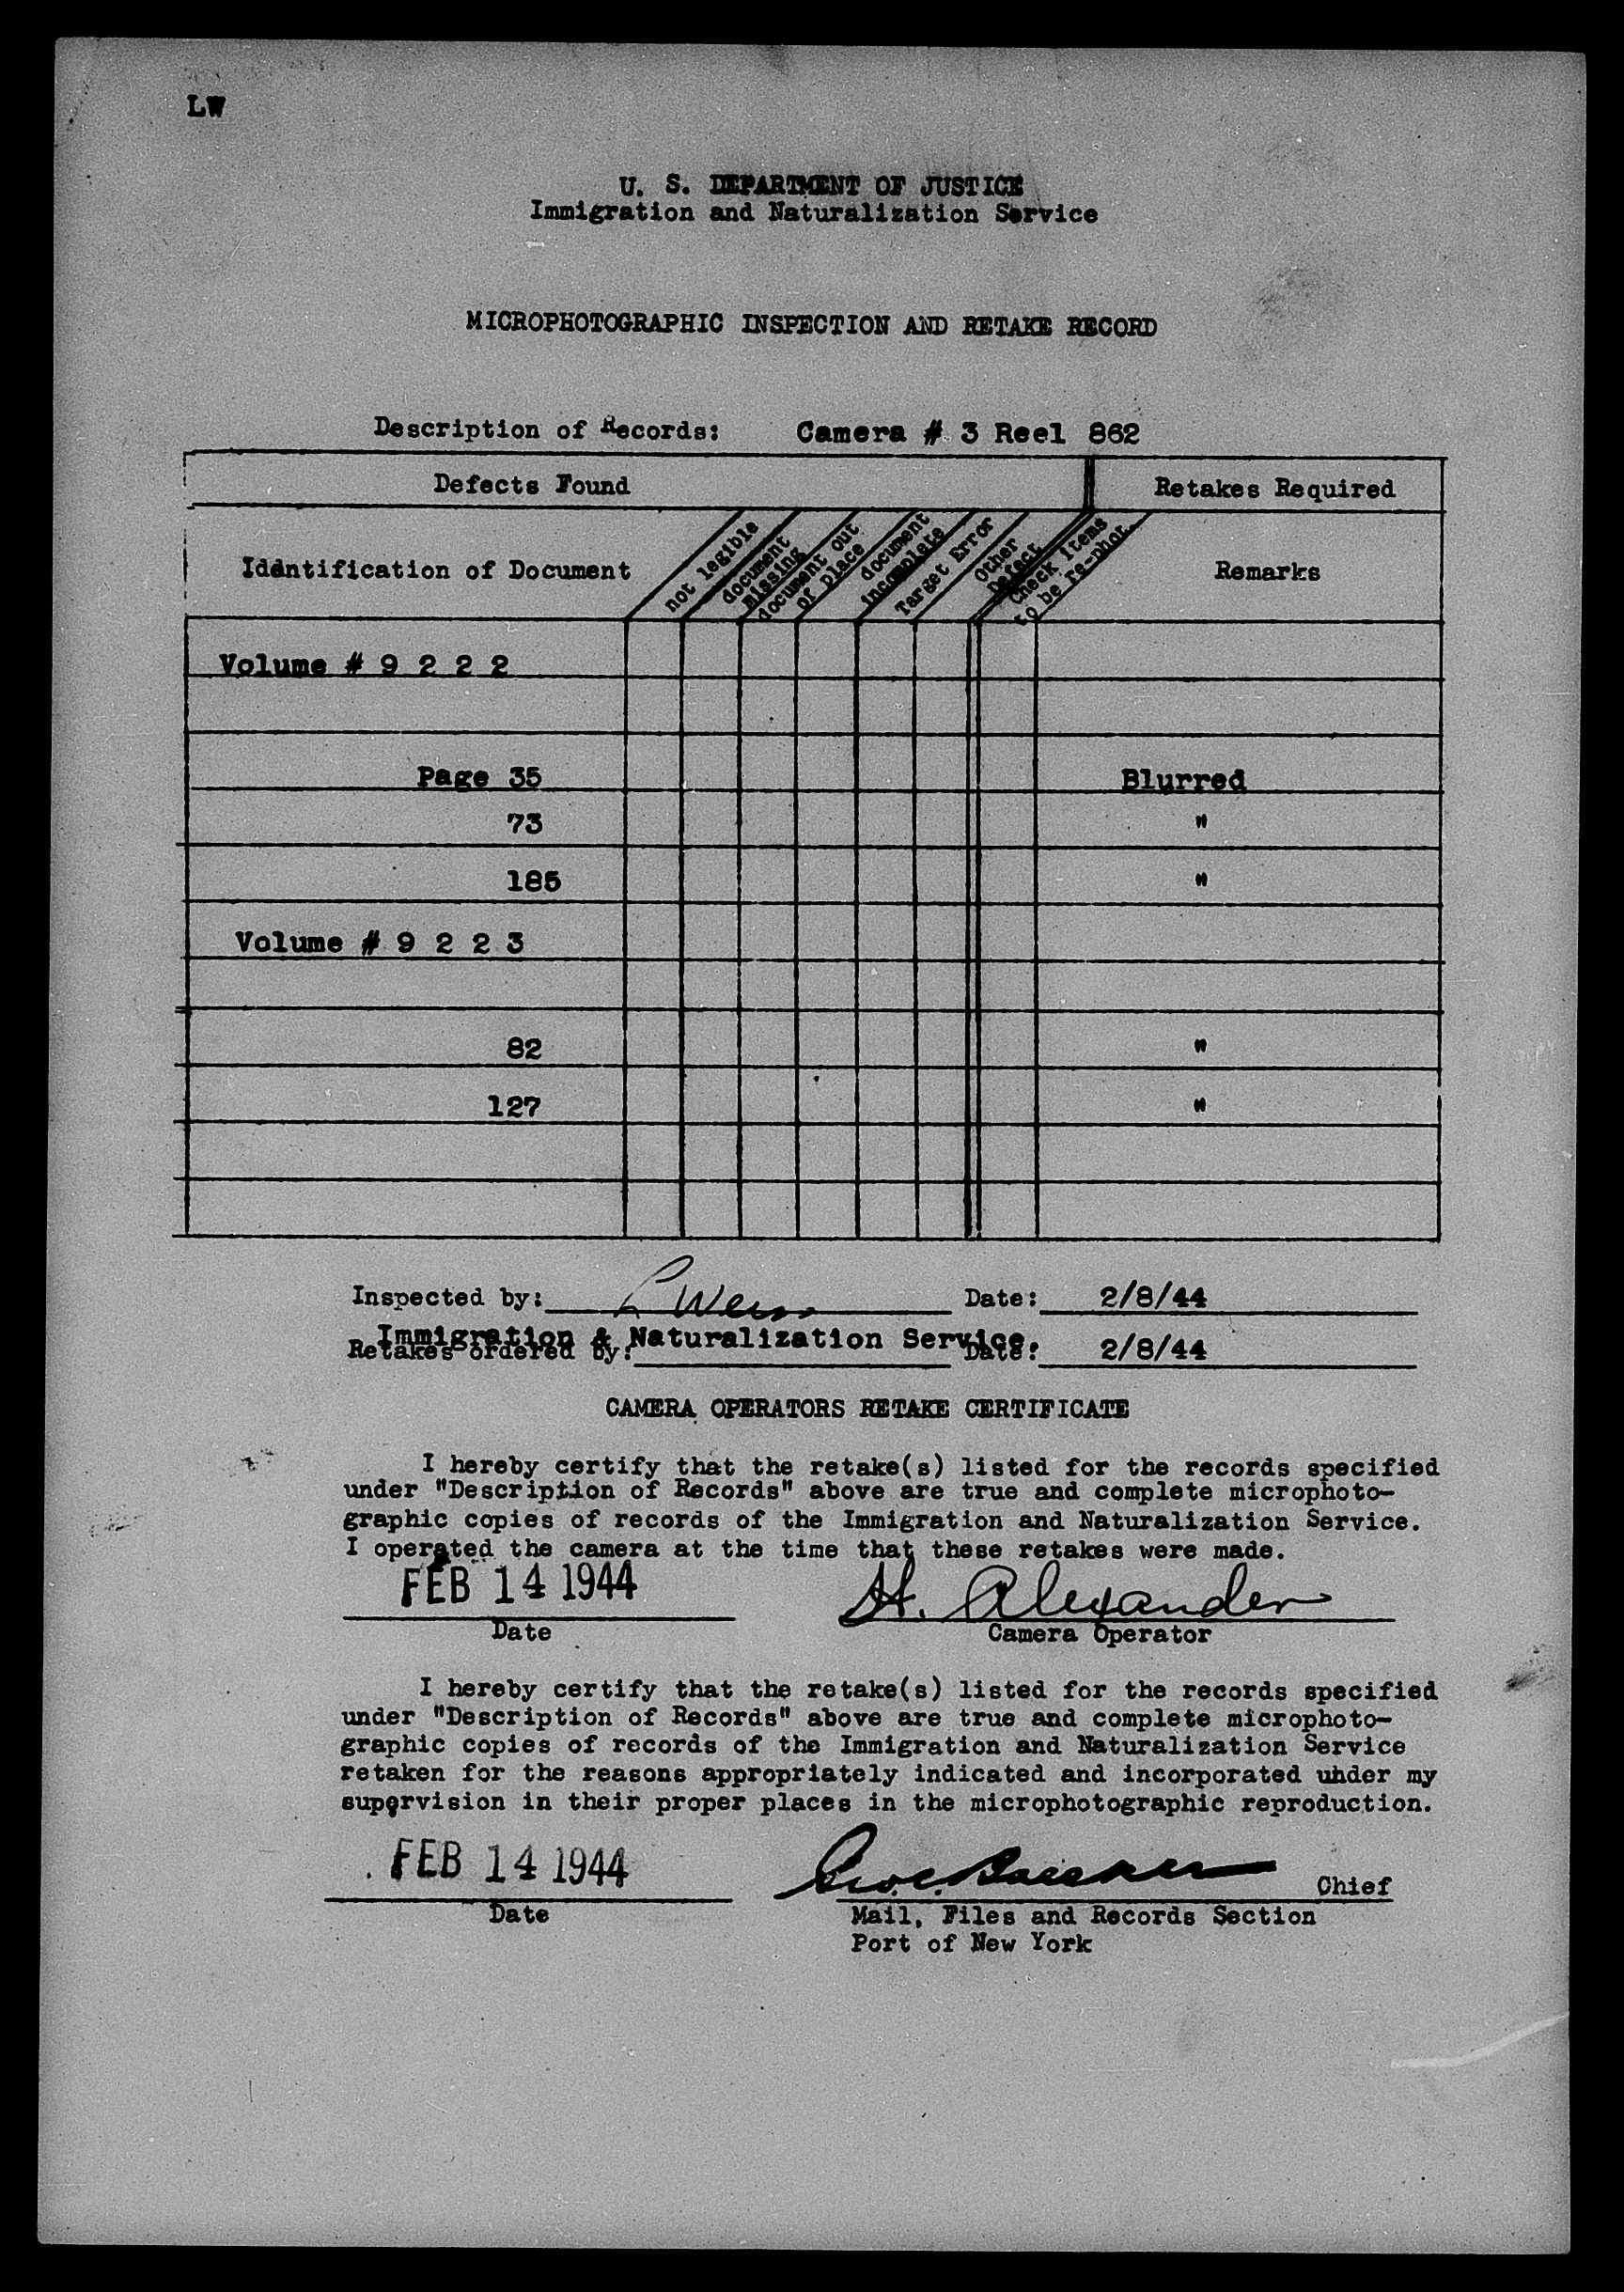 LW
U. S. DEPARTMENT OF JUSTICE
Immigration and Naturalization Service
MICROPHOTOGRAPHIC INSPECTION AND RETAKE RECORD
Description of Records: Camera # 3 Reel 862
Defects Found Retakes Required
Iddntification of Document not legible document missing document out of place document incomplete Target Error Other Defect Check items to be re-phot. Remarks
Volume # 9 2 2 2
Page 35 Blurred
73 "
185 "
Volume # 9 2 2 3
82 "
127 "
Inspected by: L Weiss Date: 2/8/44
Immigration & Naturalization Service.
Retakes ordered by: Date: 2/8/44
CAMERA OPERATORS RETAKE CERTIFICATE
I hereby certify that the retake(s) listed for the records specified
under "Description of Records" above are true and complete microphoto-
graphic copies of records of the Immigration and Naturalization Service.
I operated the camera at the time that these retakes were made.
FEB 14 1944 H. Alexander
Date Camera Operator
I hereby certify that the retake(s) listed for the records specified
under "Description of Records" above are true and complete microphoto-
graphic copies of records of the Immigration and Naturalization Service
retaken for the reasons appropriately indicated and incorporated uhder my
supervision in their proper places in the microphotographic reproduction.
FEB 14 1944 Chief
Date Mail, Files and Records Section
Port of New York